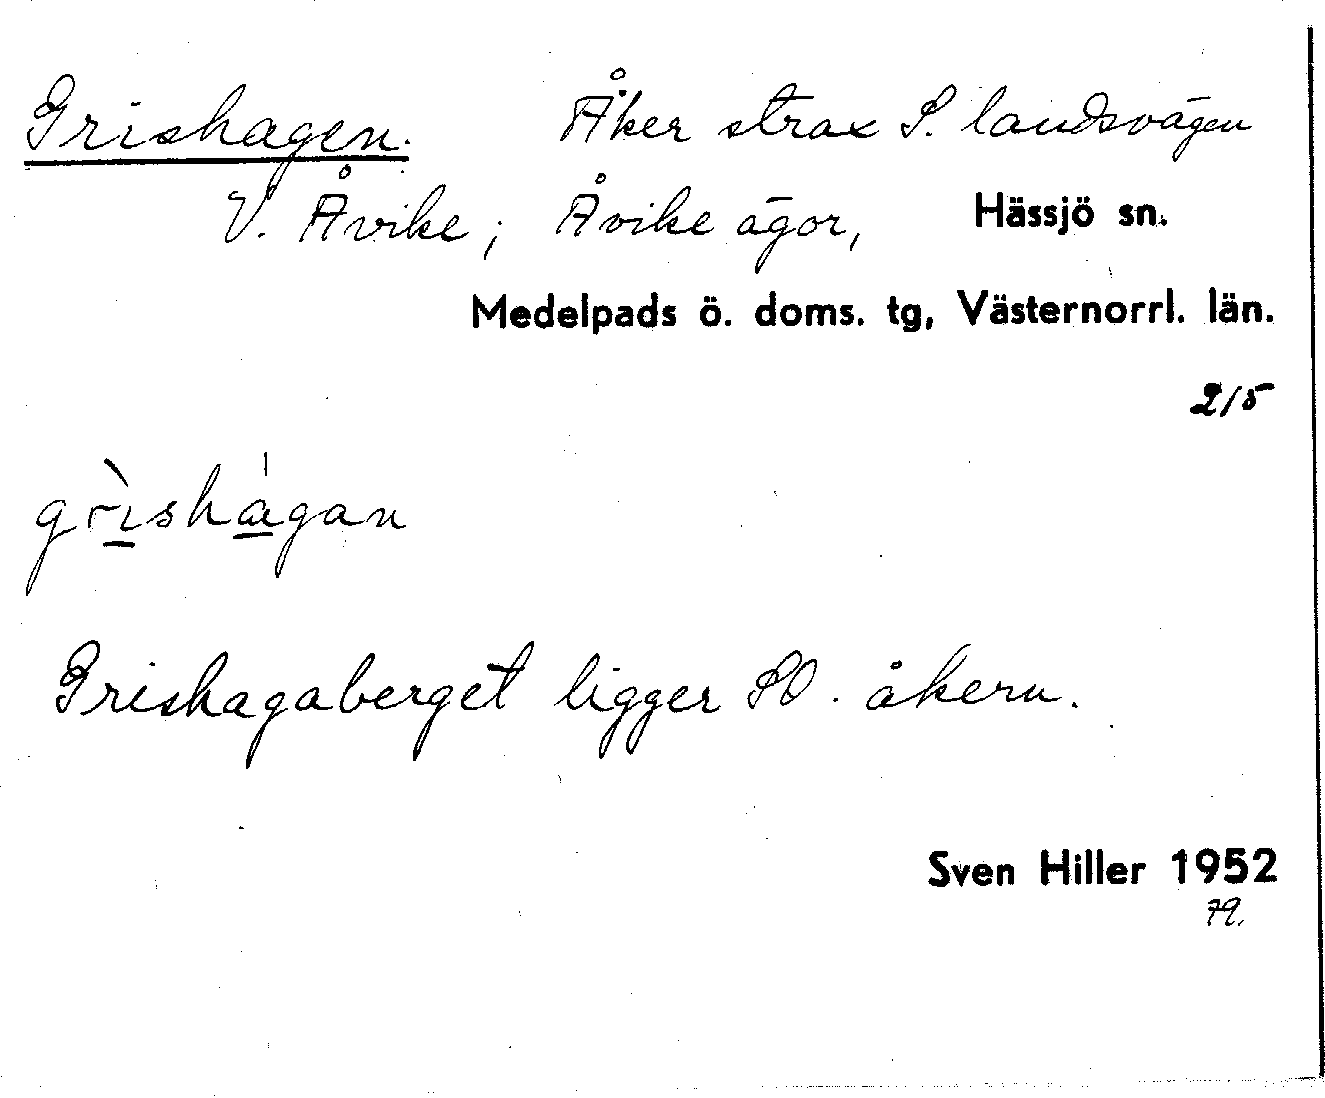 Grishagen. Åker strax S. landsvägen
V. Åvike; Åvike ägor, Hässjö sn.
Medelpads ö. doms. tg, Västernorrl. län.
2/5
grìshágan
Grishagaberget ligger SO. åkern.
Sven Hiller 1952
79.